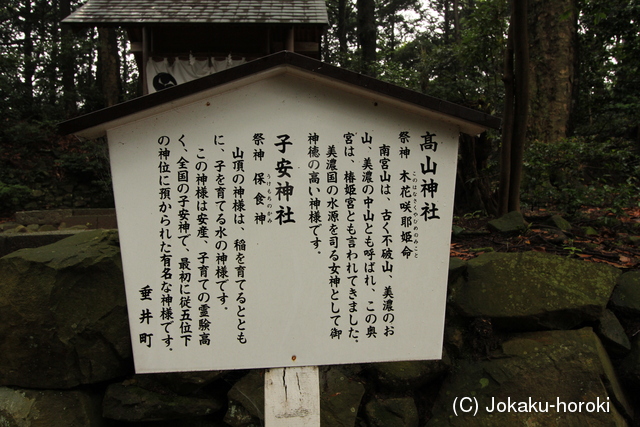 高山神社
祭神 木花咲耶姫命
このはなさくやひめのみこと
南宮山は、古く不破山、美濃のお
山、美濃の中山とも呼ばれ、この奥
宮は、椿姫宮とも言われてきました。
美濃国の水源を司る女神として御
神徳の高い神様です。
子安神社
祭神 保食神
うけもちのかみ
山頂の神様は、稲を育てるととも
に、子を育てる水の神様です。
この神様は安産、子育ての霊験高
く、全国の子安神で、最初に従五位下
の神位に預かられた有名な神様です。
垂井町
(C) Jokaku-horoki